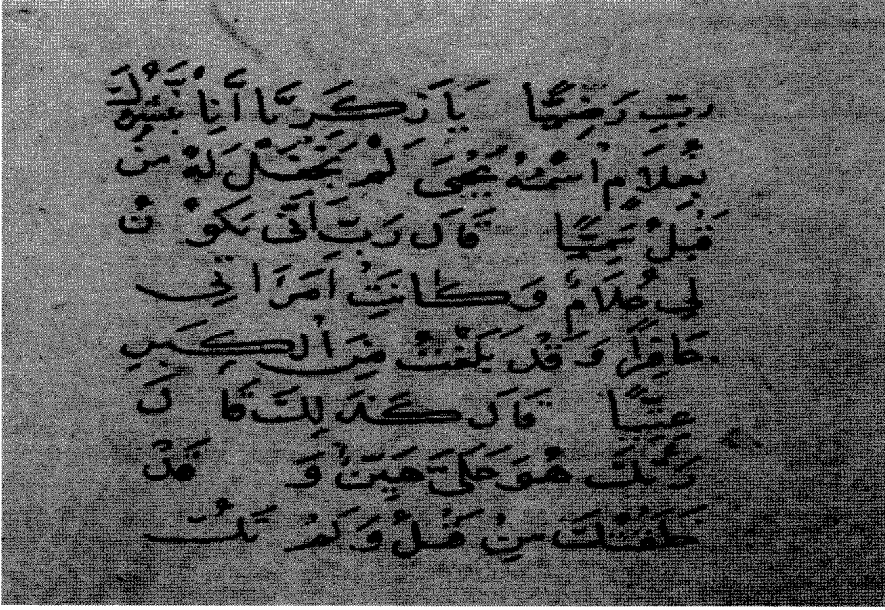 رَبِّ رَضِيًّا يَا زَكَرِيَّا أِنَّا نُبَشِّرُكَ
بِغُلَامٍ اسْمُهُ يَحْيَى لَمْ نَجْعَلْ لَهُ مِنْ
قَبْلُ سَمِيًّا قَالَ رَبِّ أَنَّى يَكُونُ
لِي غُلَامٌ وَكَانَتِ امْرَأَتِي
عَاقِرًا وَقَدْ بَلَغْتُ مِنَ الْكِبَرِ
عِتِيًّا قَالَ كَذَلِكَ قَالَ
رَبُّكَ هُوَ عَلَيَّ هَيِّنٌ وَقَدْ
خَلَقْتُكَ مِنْ قَبْلُ وَلَمْ تَكُ